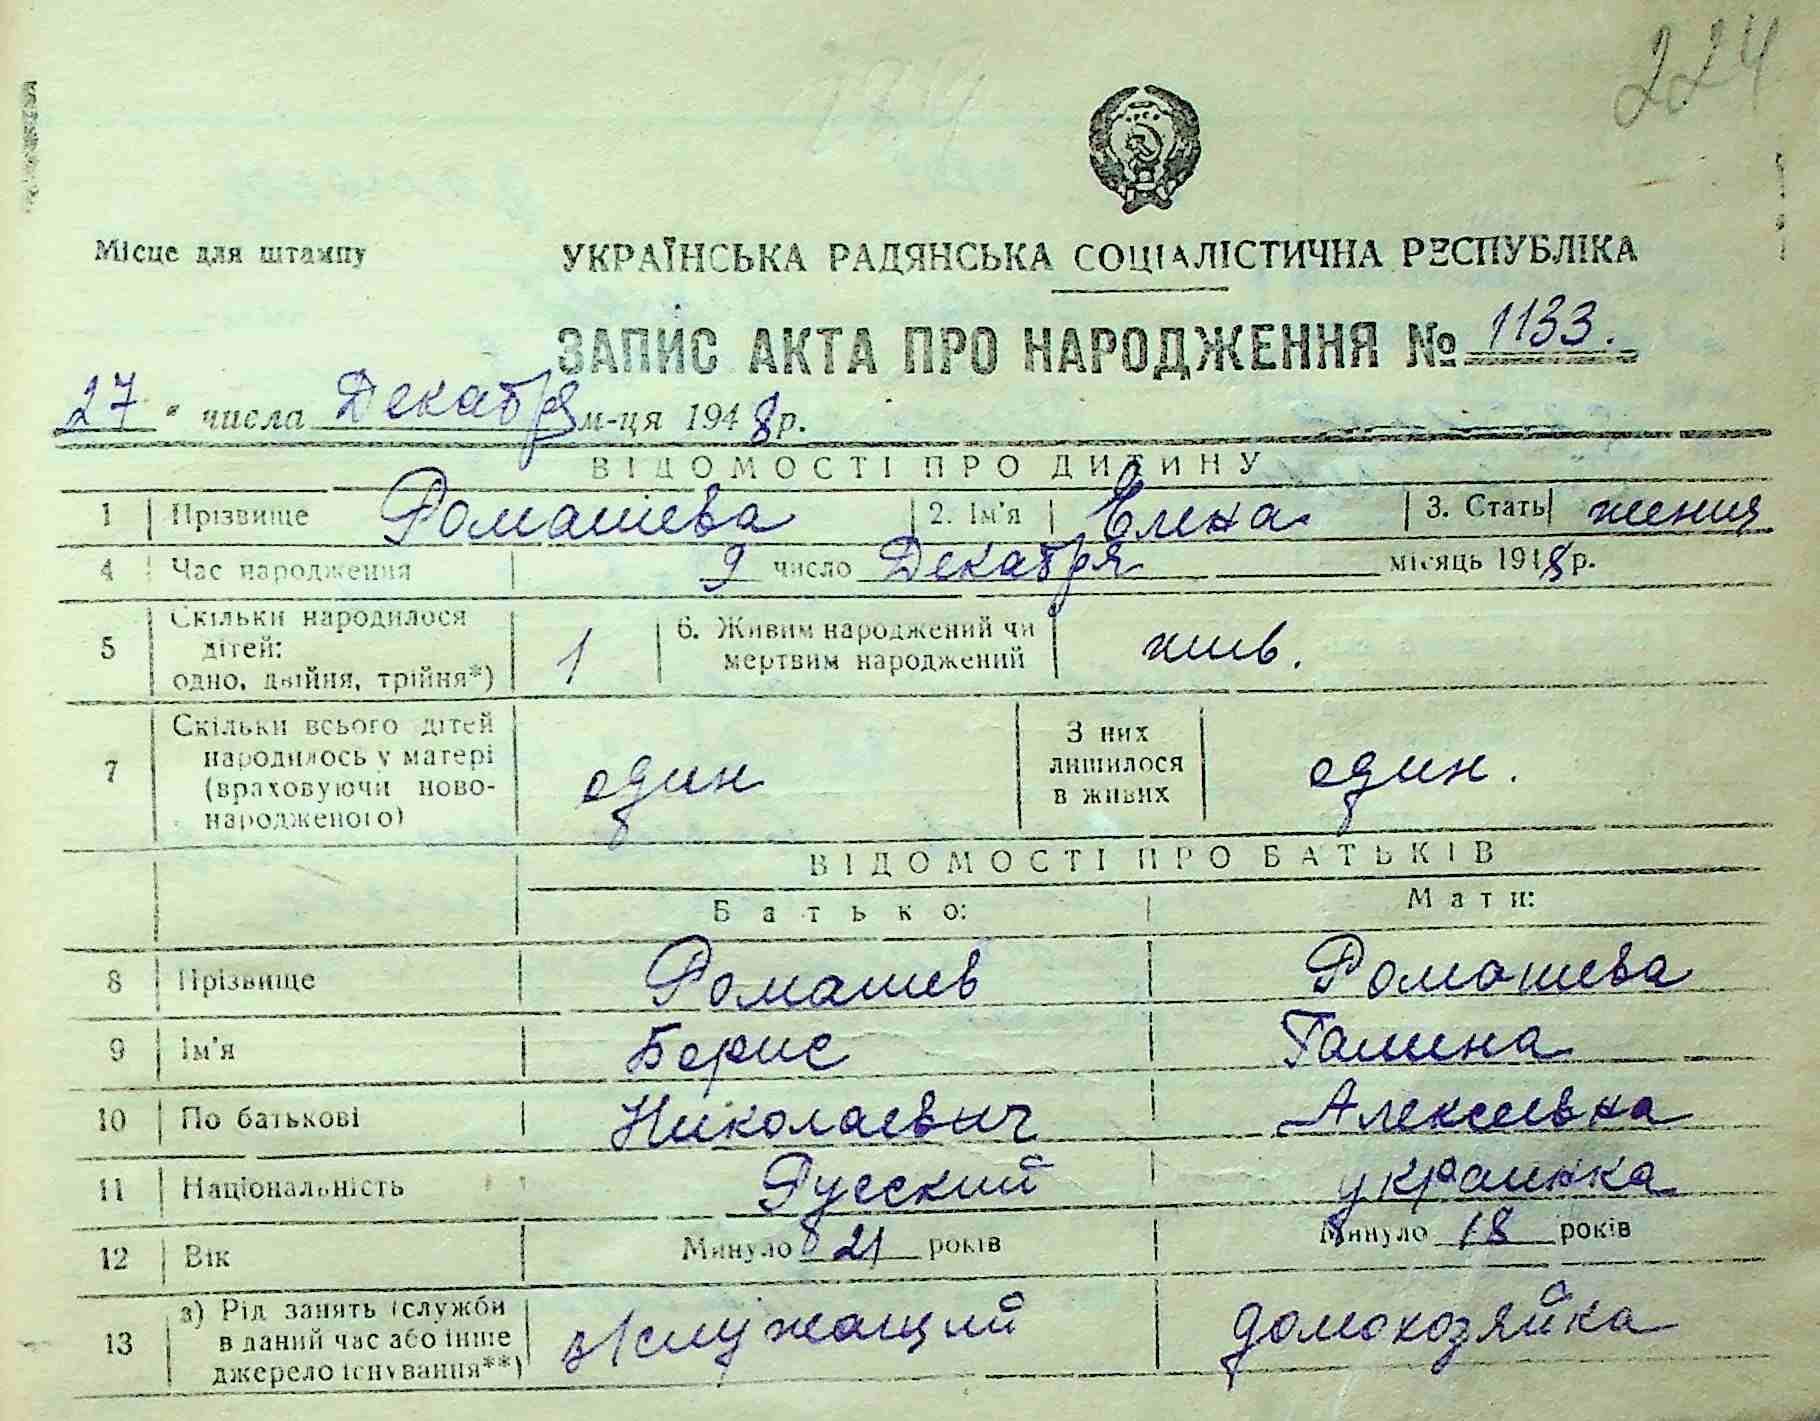 224
Місце для штампу
УКРАЇНСЬКА РАДЯНСЬКА СОЦІАЛІСТИЧНА РЕСПУБЛІКА
ЗАПИС АКТА ПРО НАРОДЖЕННЯ № 1133.
27 " числа Декабря м-ця 1948 р.
ВІДОМОСТІ ПРО ДИТИНУ
1 Прізвище Ромашева 2. Ім'я Елена 3. Стать женщ
4 Час народження 9 число Декабря місяць 1948 р.
5 Скільки народилося дітей: одно, двійня, трійня*) 1 6. Живим народжений чи мертвим народжений жив.
7 Скільки всього дітей народилось у матері (враховуючи новонародженого) один З них лишилося в живих один.
ВІДОМОСТІ ПРО БАТЬКІВ
Батько: Мати:
8 Прізвище Ромашев Ромашева
9 Ім'я Борис Галина
10 По батькові Николаевич Алексеевна
11 Національність Русский украинка
12 Вік Минуло 21 років Минуло 18 років
13 а) Рід занять (служби в даний час або інше джерело існування**) в/служащий домохозяйка